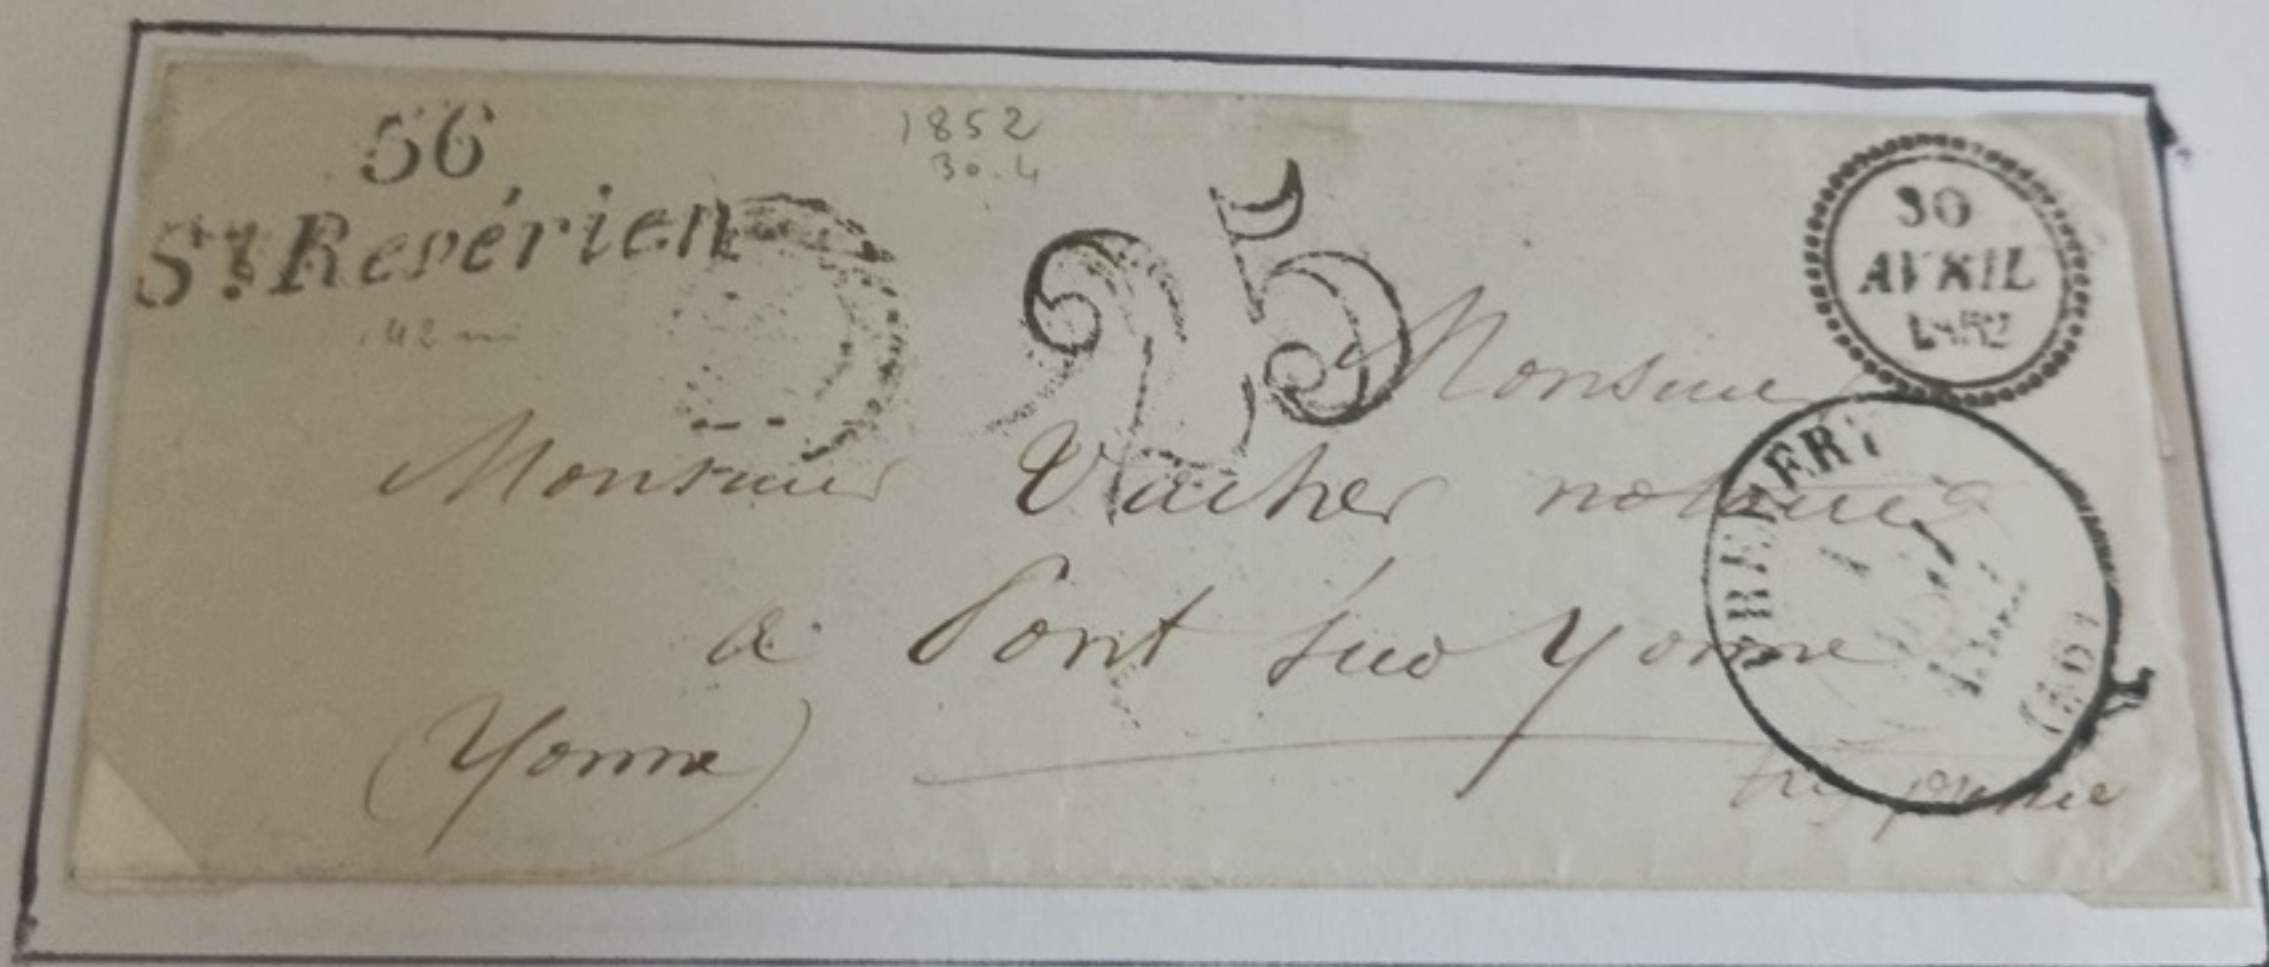 56
St Revérien
42 m
1852
30.4
25
30
AVRIL
1852
Monsieur
Monsieur Vacher notaire
à Pont sur Yonne
(Yonne)
PREMERY